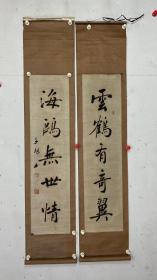 雲鶴有奇翼
海鷗無世情